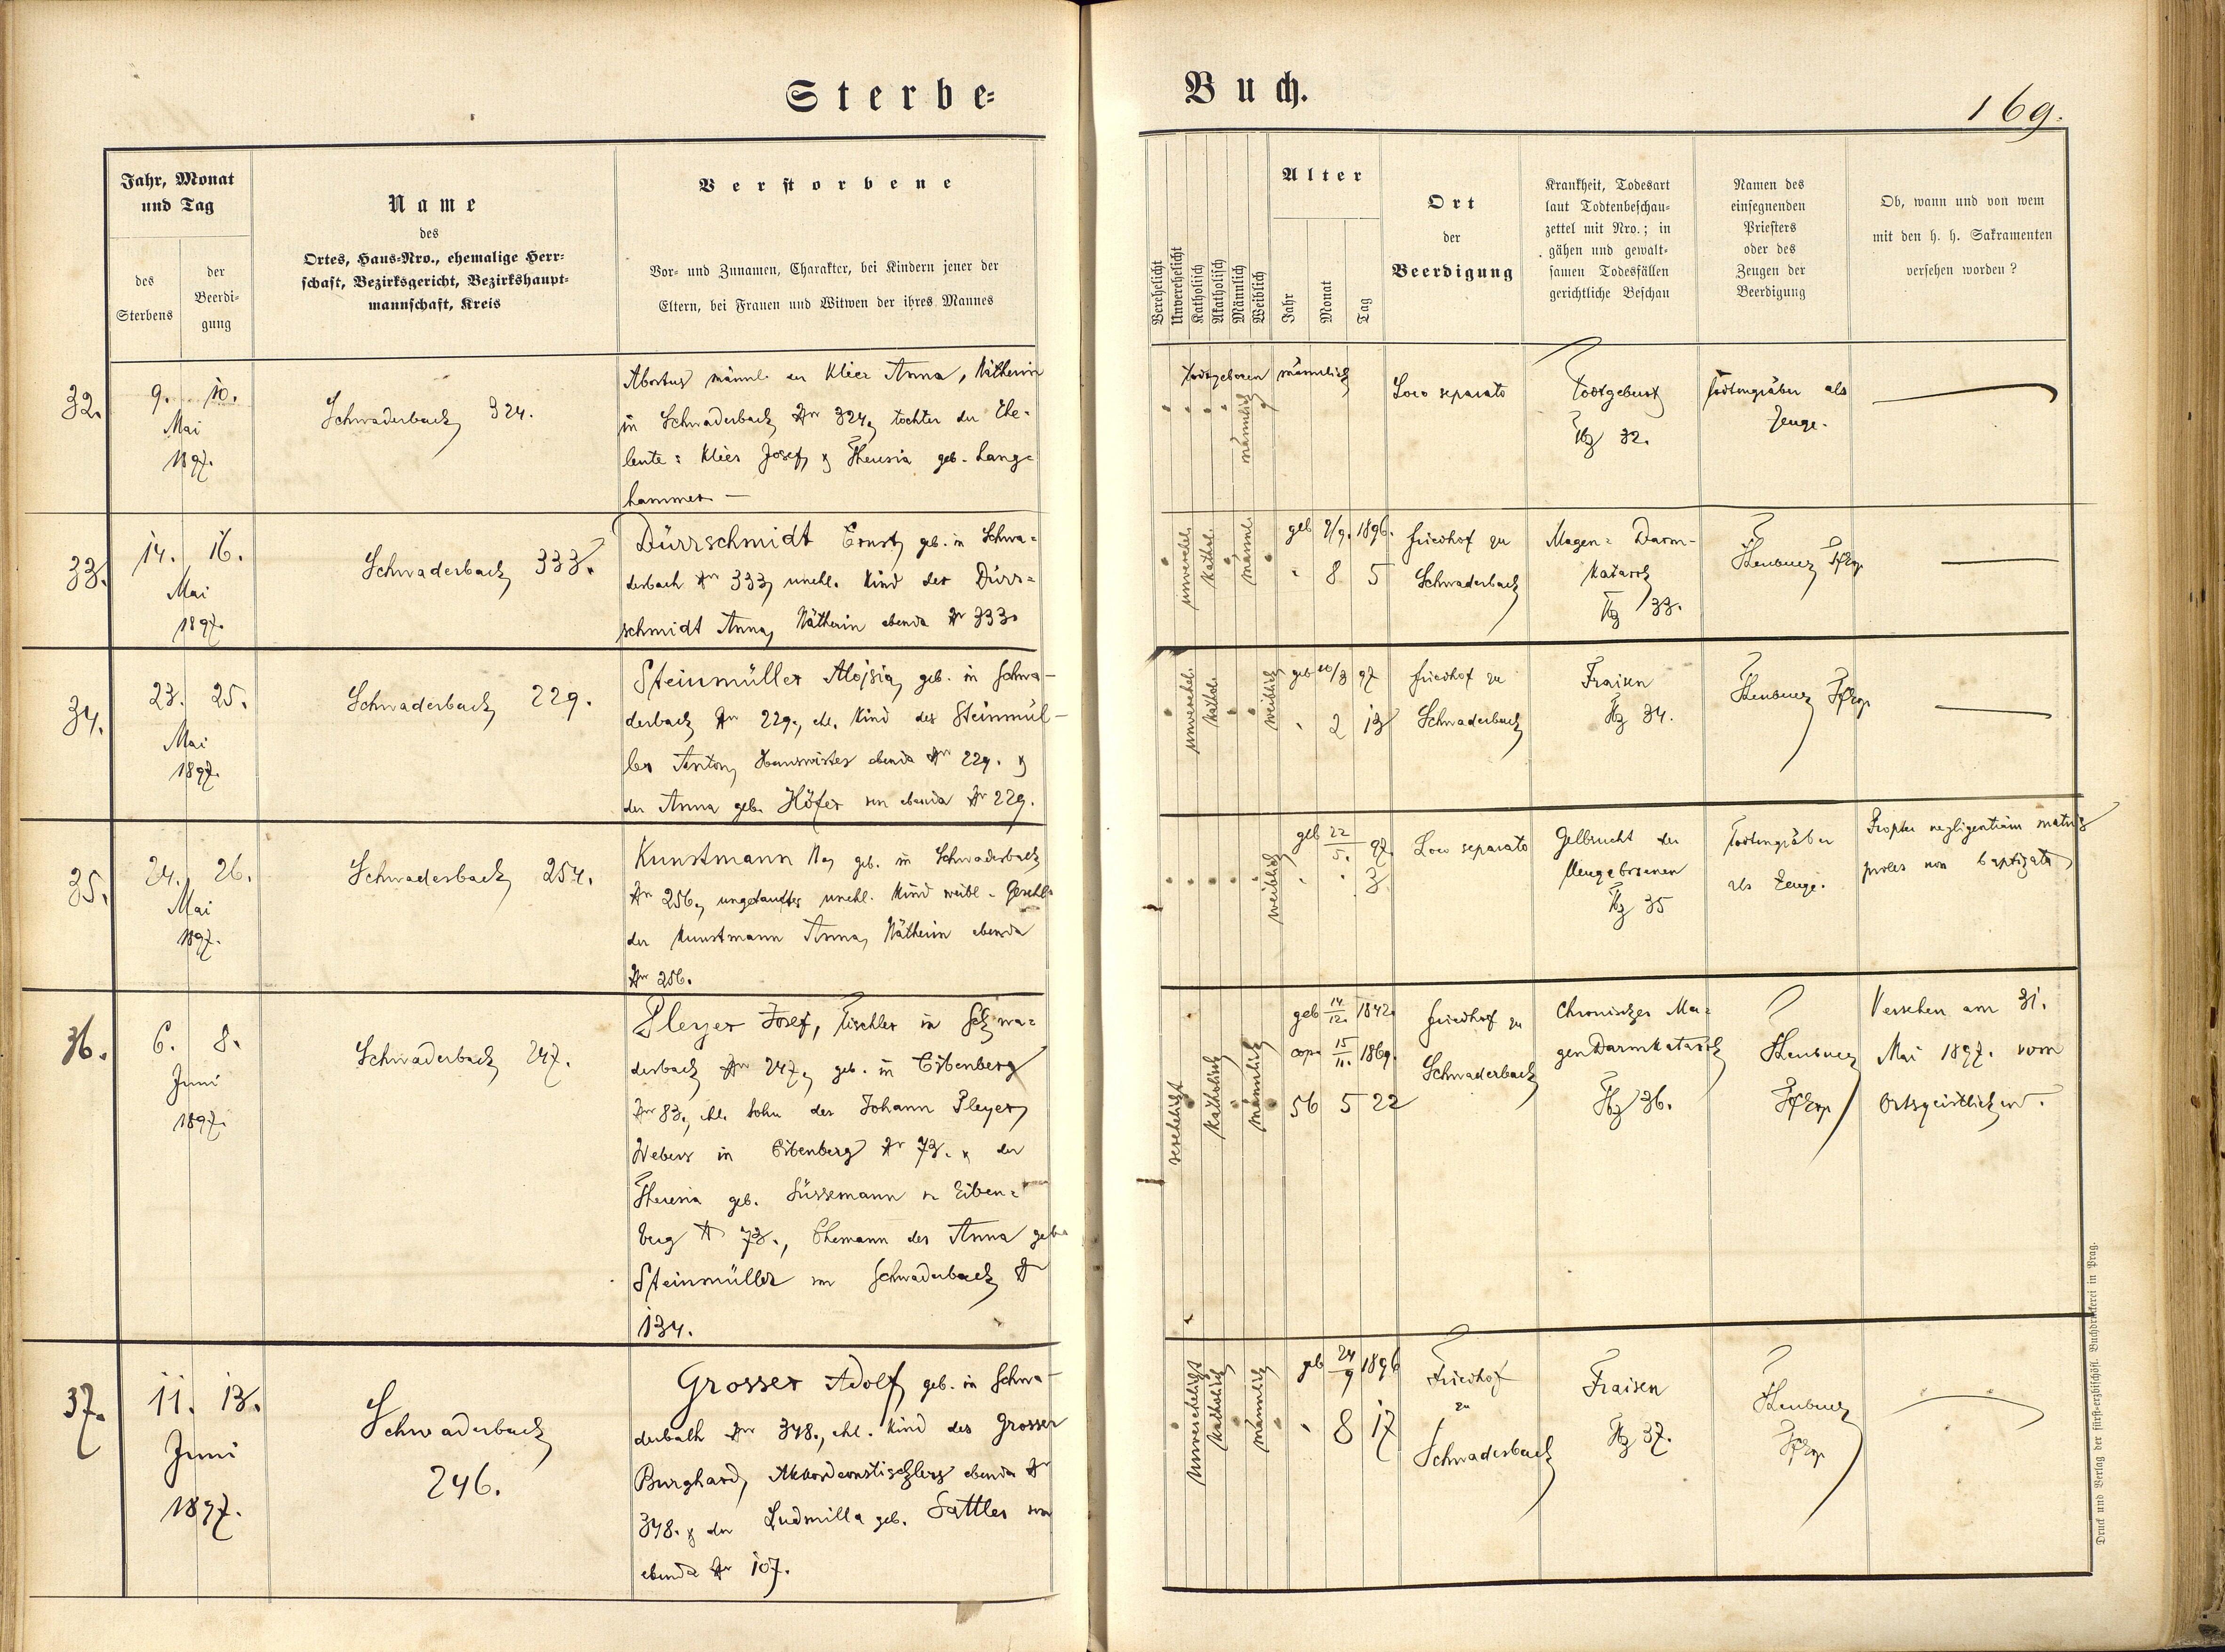 Sterbe-
Buch.
169.
Jahr, Monat
und Tag
des
Sterbens
der
Beerdi-
gung
Name
des
Ortes, Haus-Nro., ehemalige Herr-
schaft, Bezirksgericht, Bezirkshaupt-
mannschaft, Kreis
Verstorbene
Vor- und Zunamen, Charakter, bei Kindern jener der
Eltern, bei Frauen und Witwen der ihres Mannes
Verehelicht
Unverehelicht
Katholisch
Akatholisch
Männlich
Weiblich
Alter
Jahr
Monat
Tag
Ort
der
Beerdigung
Krankheit, Todesart
laut Todtenbeschau-
zettel mit Nro.; in
gähen und gewalt-
samen Todesfällen
gerichtliche Beschau
Namen des
einsegnenden
Priesters
oder des
Zeugen der
Beerdigung
Ob, wann und von wem
mit den h. h. Sakramenten
versehen worden?
32.
9. 10.
Mai
1897.
Schwaderbach 324.
Abortus männl. der Klier Anna, Nätherin
in Schwaderbach Nr 324, tochter der Ehe-
leute: Klier Josef & Theresia geb. Lang-
hammer —
todtgeboren männlich
männlich
Loco separato
Todtgeburt
32.
Todtengräber als
Zeuge.
33.
14. 16.
Mai
1897.
Schwaderbach 333.
Dürrschmidt Ernst, geb. in Schwa-
derbach Nr 333, unehl. Kind der Dürr-
schmidt Anna, Nätherin ebenda Nr 333.
unverehel.
kathol.
männl.
geb 9/9. 1896.
8 5
Friedhof zu
Schwaderbach
Magen- Darm-
katarrh
33.
34.
23. 25.
Mai
1897.
Schwaderbach 229.
Steinmüller Aloisia, geb. in Schwa-
derbach Nr 229., ehl. Kind des Steinmül-
ler Anton, Hauswirtes ebenda Nr 229. &
der Anna geb. Höfer von ebenda Nr 229.
unverehel.
kathol.
weiblich
geb 10/3 97
2 13
Friedhof zu
Schwaderbach
Fraisen
34.
35.
24. 26.
Mai
1897.
Schwaderbach 254.
Kunstmann N., geb. in Schwaderbach
Nr 256., ungetauftes unehl. Kind weibl. Geschl.
der Kunstmann Anna, Nätherin ebenda
Nr 256.
weiblich
geb 22/5. 97.
3
Loco separato
Gelbsucht der
Neugeborenen
35
Todtengräber
als Zeuge.
Propter negligentiam matris
proles non baptizata
36.
6. 8.
Juni
1897.
Schwaderbach 247.
Pleyer Josef, Tischler in Schwa-
derbach Nr 247., geb. in Eibenberg
Nr 83., ehl. Sohn des Johann Pleyer,
Webers in Eibenberg Nr 73. & der
Theresia geb. Süssemann von Eiben-
berg Nr 73., Ehemann der Anna geb.
Steinmüller von Schwaderbach Nr
134.
verehelicht
katholisch
männlich
geb 14/12. 1842.
cop. 15/11. 1869.
56 5 22
Friedhof zu
Schwaderbach
Chronischer Ma-
genDarmkatarrh
36.
Versehen am 31.
Mai 1897. vom
Ortsgeistlichen.
37.
11. 13.
Juni
1897.
Schwaderbach
246.
Grosser Adolf, geb. in Schwa-
derbach Nr 348., ehl. Kind des Grosser
Burghard, Akkordeonstischlers ebenda Nr
348. & der Ludmilla geb. Sattler von
ebenda Nr 107.
unverehelicht
katholisch
männlich
geb 24/9 1896
8 17
Friedhof
zu
Schwaderbach
Fraisen
37.
Druck und Verlag der fürst-erzbischöfl. Buchdruckerei in Prag.